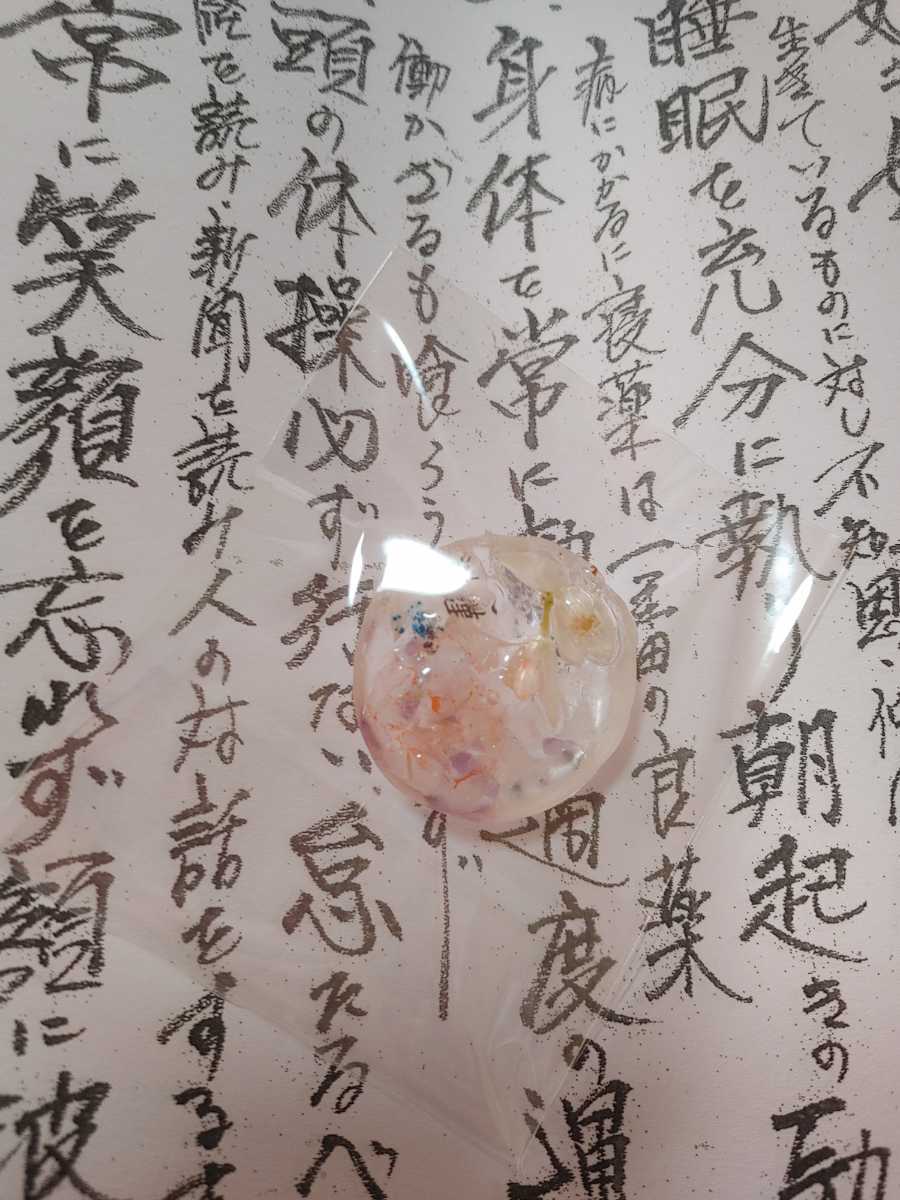 生きているものに対し不知恩、
睡眠を充分に執り朝起きの励
病にかかるに寝薬は一番の良薬
身体を常に 適度の運
働かざるも喰しろう ず
頭の体操必ず行ない怠たるべ
経を読み、新聞を読み人の対話をする
常に笑顔を忘れず額に被